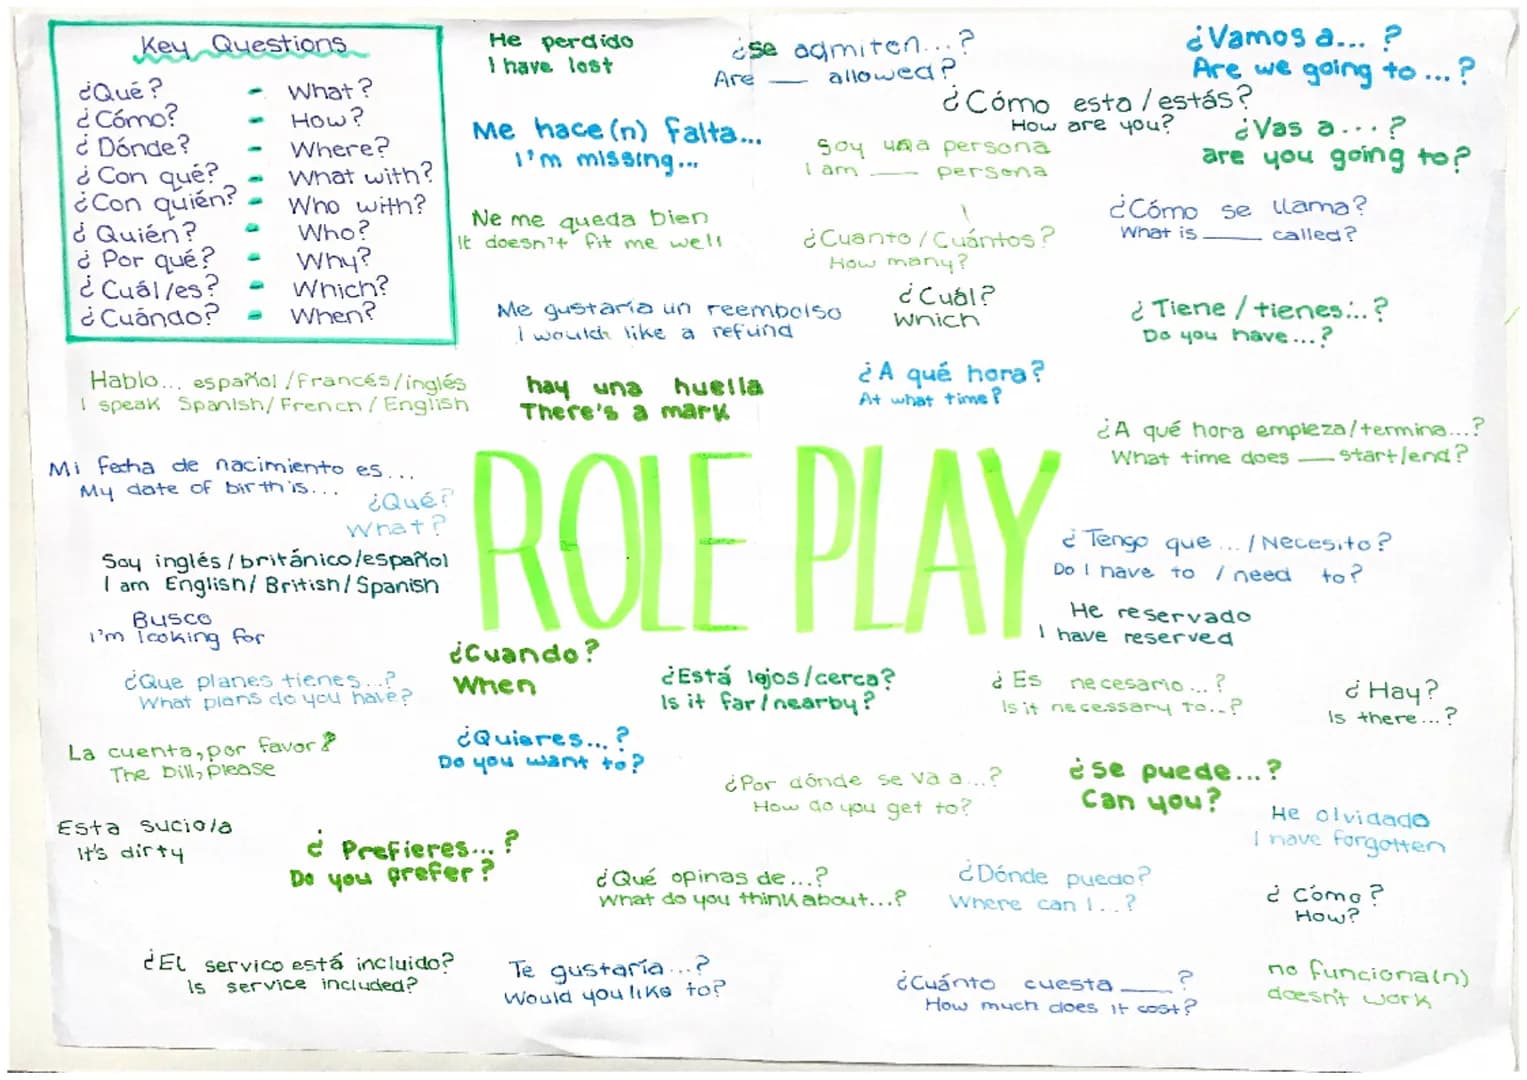 Key Questions
¿Qué? - What?
¿Cómo? - How?
¿Dónde? - Where?
¿Con qué? - What with?
¿Con quién? - Who with?
¿Quién? - Who?
¿Por qué? - Why?
¿Cuál/es? - Which?
¿Cuándo? - When?
He perdido
I have lost
¿Se admiten...?
Are ___ allowed?
¿Vamos a... ?
Are we going to ...?
¿Cómo esta/estás?
How are you?
Me hace(n) falta...
I'm missing...
Soy una persona
I am ___ persona
¿Vas a...?
are you going to?
Ne me queda bien
It doesn't fit me well
¿Cuanto/Cuántos?
How many?
¿Cómo se llama?
What is ___ called?
Me gustaría un reembolso
I would like a refund
¿Cuál?
Which
¿Tiene/tienes...?
Do you have...?
Hablo... español/Francés/inglés
I speak Spanish/French/English
hay una huella
There's a mark
¿A qué hora?
At what time?
¿A qué hora empieza/termina...?
What time does ___ start/end?
Mi fecha de nacimiento es...
My date of birth is...
¿Qué?
What?
ROLE PLAY
Soy inglés/británico/español
I am English/British/Spanish
¿Tengo que .../Necesito?
Do I have to / need to?
Busco
I'm looking for
He reservado
I have reserved
¿Que planes tienes...?
What plans do you have?
¿Cuando?
When
¿Está lejos/cerca?
Is it far/nearby?
¿Es necesario...?
Is it necessary to...?
¿Hay?
Is there...?
La cuenta, por favor?
The bill, please
¿Quieres...?
Do you want to?
¿Por dónde se va a...?
How do you get to?
¿Se puede...?
Can you?
He olvidado
I have forgotten
Esta sucio/a
It's dirty
¿Prefieres...?
Do you prefer?
¿Qué opinas de...?
What do you think about...?
¿Dónde puedo?
Where can I...?
¿Cómo?
How?
¿El servico está incluido?
Is service included?
Te gustaría...?
Would you like to?
¿Cuánto cuesta ___?
How much does it cost?
no funciona(n)
doesn't work